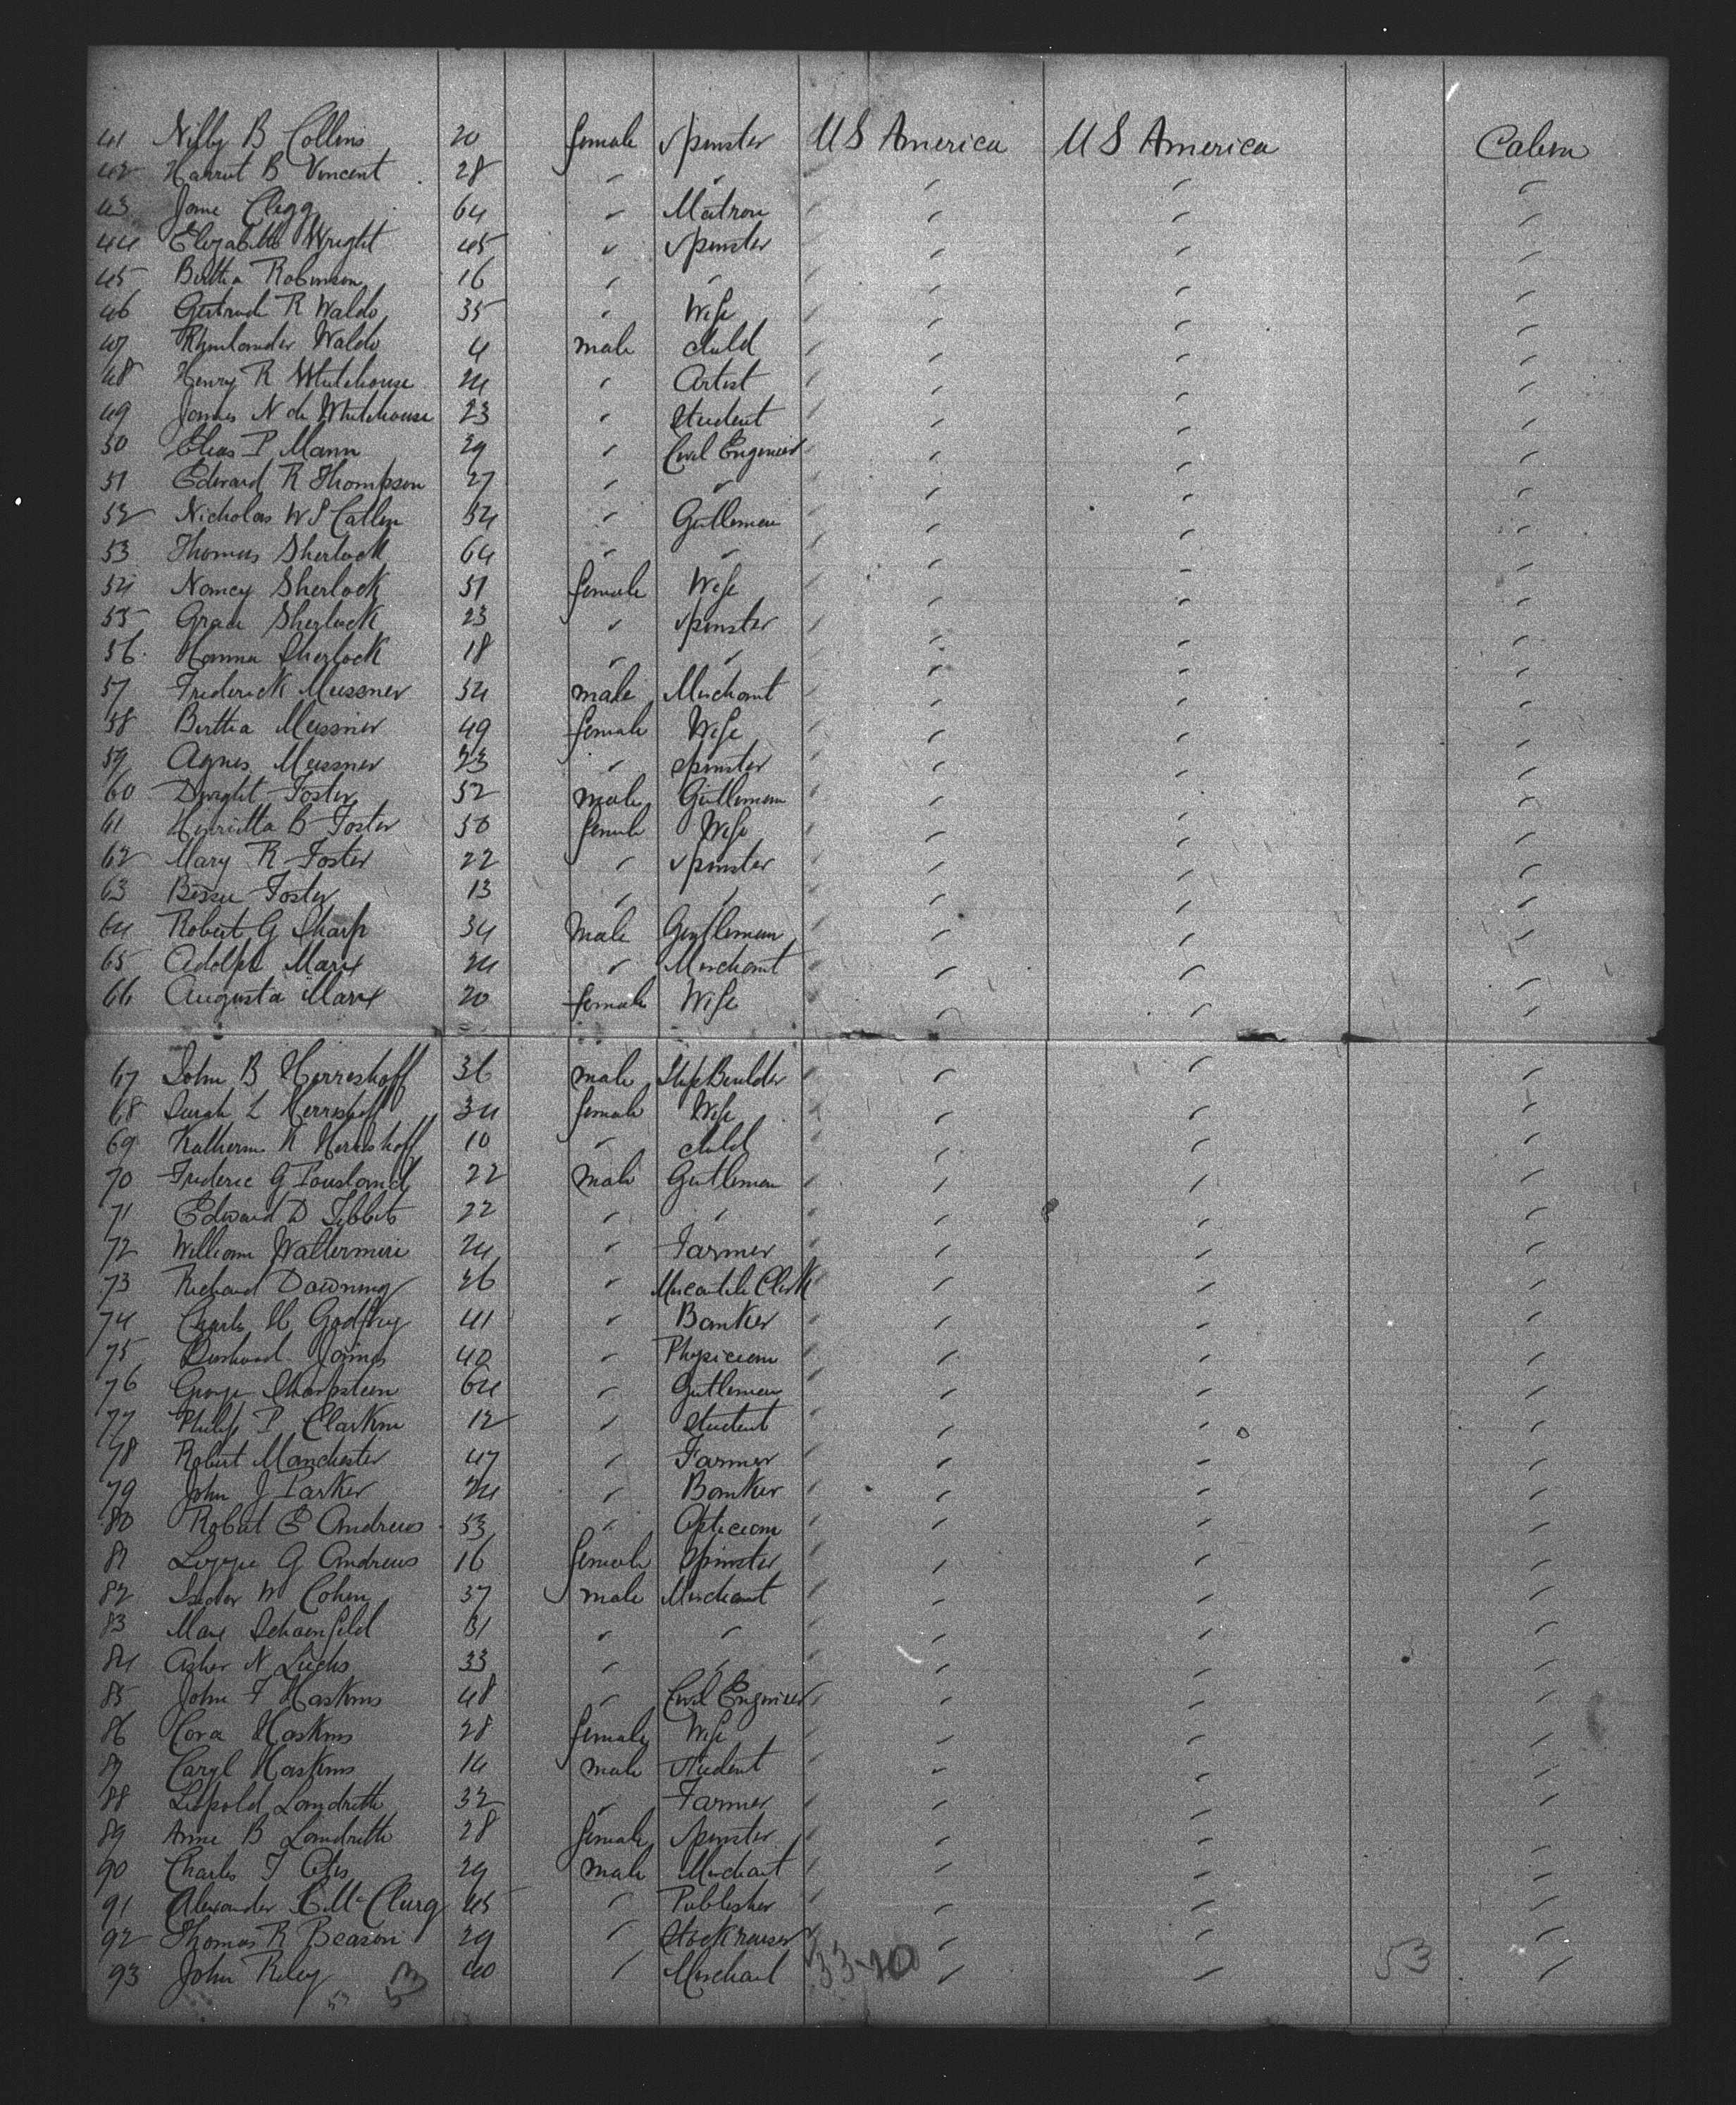 41 Nilly B Collins 20 female Spinster US America US America Cabin
42 Harriet B Vincent 28 " " " " "
43 Jane Clegg 64 " Matron " " "
44 Elizabeth Wright 45 " Spinster " " "
45 Bertha Robinson 16 " " " " "
46 Gertrude R Waldo 35 " Wife " " "
47 Rhinlander Waldo 4 male child " " "
48 Henry R Whitehouse 24 " Artist " " "
49 James N de Whitehouse 23 " Student " " "
50 Elias P Mann 29 " Civil Engineer " " "
51 Edward R Thompson 27 " " " " "
52 Nicholas W S Catlin 54 " Gentleman " " "
53 Thomas Sherlock 64 " " " " "
54 Nancy Sherlock 51 female Wife " " "
55 Grace Sherlock 23 " Spinster " " "
56 Hanna Sherlock 18 " " " " "
57 Frederick Meissner 54 male Merchant " " "
58 Bertha Meissner 49 female Wife " " "
59 Agnes Meissner 23 " Spinster " " "
60 Dwight Foster 52 male Gentleman " " "
61 Henrietta B Foster 50 female Wife " " "
62 Mary R Foster 22 " Spinster " " "
63 Bessie Foster 13 " " " " "
64 Robert G Sharp 34 Male Gentleman " " "
65 Adolph Marx 24 " Merchant " " "
66 Augusta Marx 20 female Wife " " "
67 John B Herreshoff 36 male Ship Builder " " "
68 Sarah L Herreshoff 34 female Wife " " "
69 Katherine K Herreshoff 10 " child " " "
70 Frederic G 22 male Gentleman " " "
71 Edward D Tibbits 22 " " " " "
72 William Waltermire 24 " Farmer " " "
73 Richard Downing 26 " Mercantile Clerk " " "
74 Charles H Godfrey 41 " Banker " " "
75 40 " Physician " " "
76 George Sharpsteen 64 " Gentleman " " "
77 Philip P Clarkm 12 " Student " " "
78 Robert Manchester 47 " Farmer " " "
79 John J Parker 24 " Banker " " "
80 Robert E Andrews 53 " Optician " " "
81 Lizzie G Andrews 16 female Spinster " " "
82 Isidor W Cohen 37 male Merchant " " "
83 Max Schoenfeld 31 " " " " "
84 Asher N Luchs 33 " " " " "
85 John F Haskins 48 " Civil Engineer " " "
86 Cora Haskins 28 female Wife " " "
87 Caryl Haskins 14 male Student " " "
88 Leopold Landreth 32 " Farmer " " "
89 Anne B Landreth 28 female Spinster " " "
90 Charles T Otis 29 male Merchant " " "
91 Alexander C McClurg 45 " Publisher " " "
92 Thomas R Beason 29 " Stock raiser " " "
93 John Riley 40 " Merchant " " "
53 33-20 53